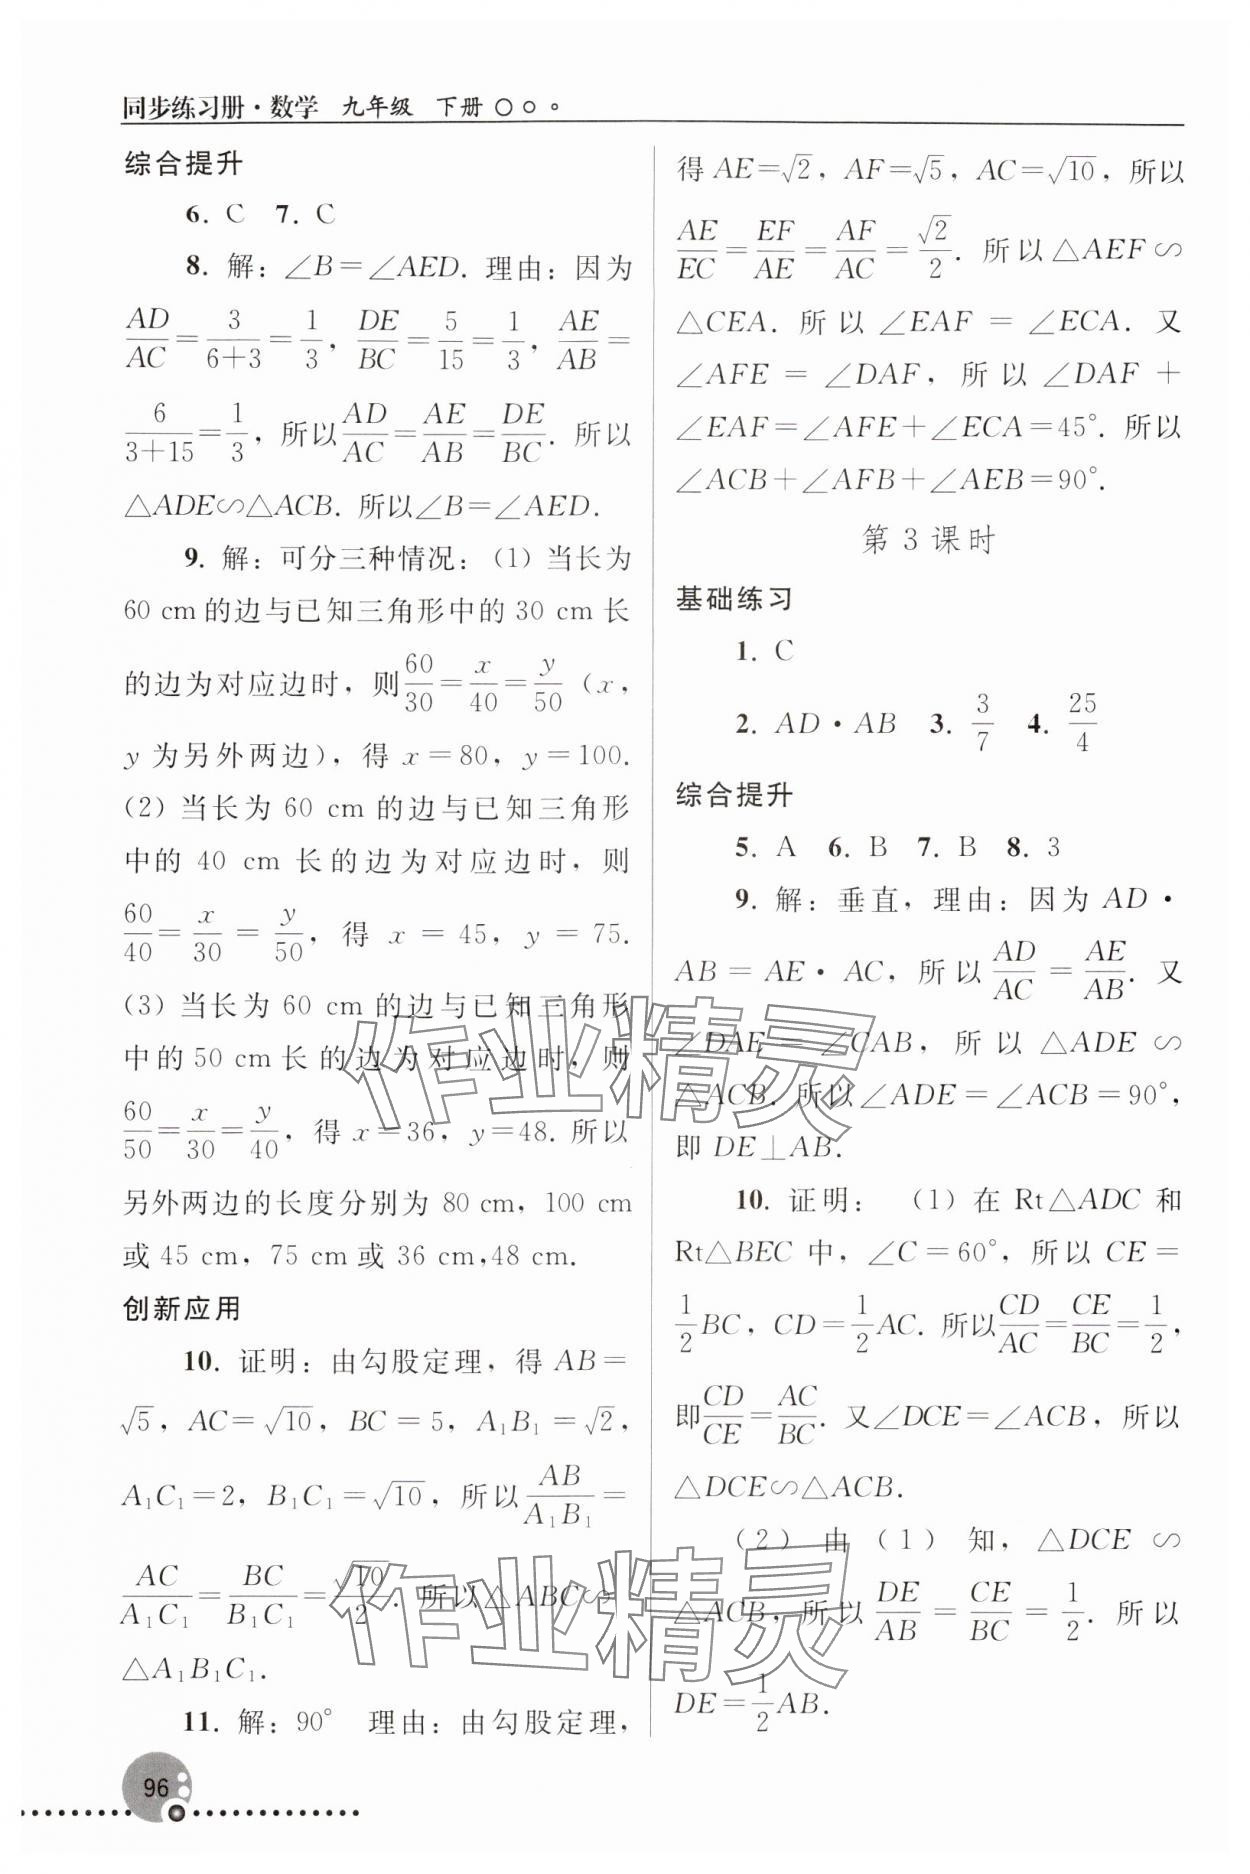 同步练习册·数学 九年级 下册
综合提升
6. C 7. C
8. 解：∠B=∠AED. 理由：因为
AD/AC=3/(6+3)=1/3，DE/BC=5/15=1/3，AE/AB=
6/(3+15)=1/3，所以AD/AC=AE/AB=DE/BC. 所以
△ADE∽△ACB. 所以∠B=∠AED.
9. 解：可分三种情况：(1) 当长为
60 cm的边与已知三角形中的 30 cm 长
的边为对应边时，则60/30=x/40=y/50 (x，
y 为另外两边)，得 x=80，y=100.
(2) 当长为 60 cm 的边与已知三角形
中的 40 cm 长的边为对应边时，则
60/40=x/30=y/50，得 x=45，y=75.
(3) 当长为 60 cm 的边与已知三角形
中的 50 cm 长的边为对应边时，则
60/50=x/30=y/40，得 x=36，y=48. 所以
另外两边的长度分别为 80 cm，100 cm
或 45 cm，75 cm 或 36 cm,48 cm.
创新应用
10. 证明：由勾股定理，得 AB=
√5，AC=√10，BC=5，A₁B₁=√2，
A₁C₁=2，B₁C₁=√10，所以AB/A₁B₁=
AC/A₁C₁=BC/B₁C₁=√10/2. 所以△ABC∽
△A₁B₁C₁.
11. 解：90° 理由：由勾股定理，
96
得 AE=√2，AF=√5，AC=√10，所以
AE/EC=EF/AE=AF/AC=√2/2. 所以△AEF∽
△CEA. 所以∠EAF=∠ECA. 又
∠AFE=∠DAF，所以∠DAF+
∠EAF=∠AFE+∠ECA=45°. 所以
∠ACB+∠AFB+∠AEB=90°.
第 3 课时
基础练习
1. C
2. AD·AB 3. 3/7 4. 25/4
综合提升
5. A 6. B 7. B 8. 3
9. 解：垂直，理由：因为 AD·
AB=AE·AC，所以AD/AC=AE/AB. 又
∠DAE=∠CAB，所以△ADE∽
△ACB. 所以∠ADE=∠ACB=90°，
即 DE⊥AB.
10. 证明：(1) 在 Rt△ADC 和
Rt△BEC 中，∠C=60°，所以 CE=
1/2BC，CD=1/2AC. 所以CD/AC=CE/BC=1/2，
即CD/CE=AC/BC. 又∠DCE=∠ACB，所以
△DCE∽△ACB.
(2) 由 (1) 知，△DCE∽
△ACB，所以DE/AB=CE/BC=1/2. 所以
DE=1/2AB.
作业精灵
作业精灵